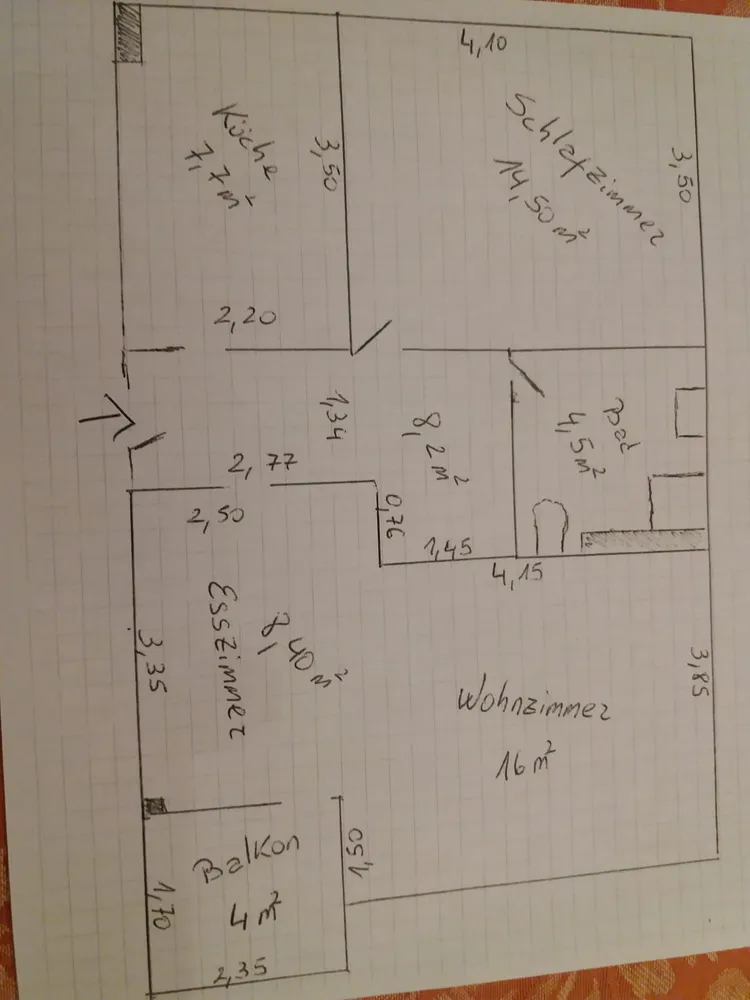 4,10
Küche
7,7m²
3,50
Schlafzimmer
14,50m²
3,50
2,20
1,34
8,2m²
Bad
4,5m²
2,77
2,50
0,76
1,45
4,15
Esszimmer
8,40m²
3,35
Wohnzimmer
16m²
3,85
Balkon
4m²
1,50
1,70
2,35